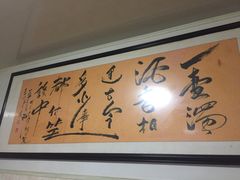 一壶濁
酒喜相
逢古今
多少事
都付笑
谈中